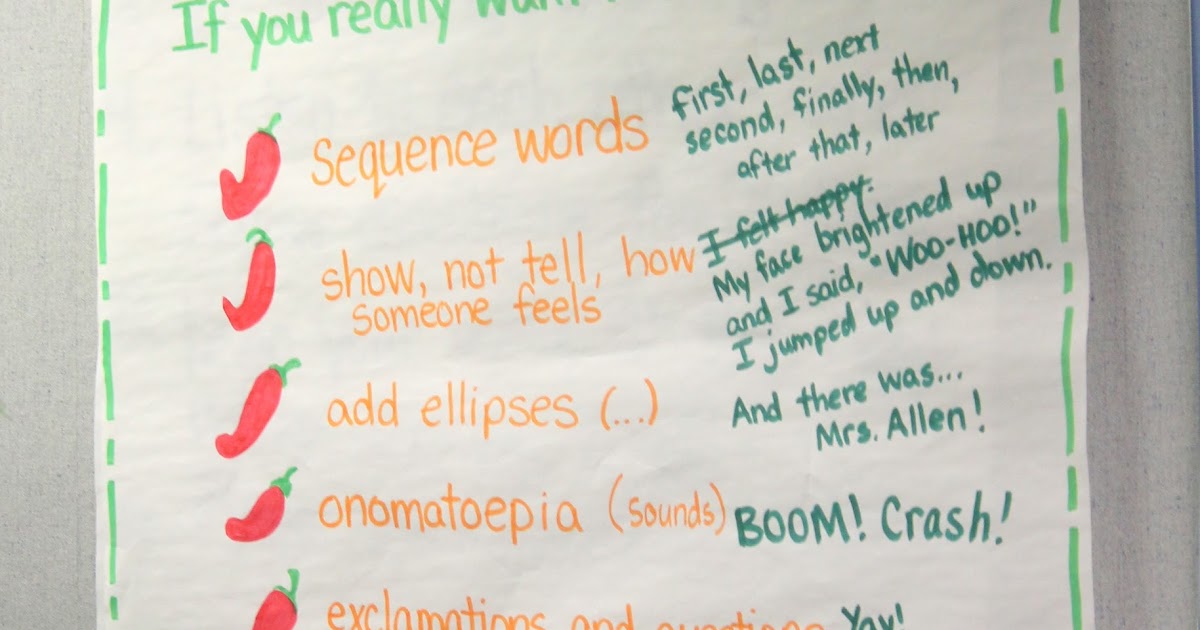 If you really want
Sequence words
first, last, next
second, finally, then,
after that, later
show, not tell, how
someone feels
I felt happy.
My face brightened up
and I said, "WOO-HOO!"
I jumped up and down.
add ellipses (...)
And there was...
Mrs. Allen!
onomatoepia (sounds)
BOOM! Crash!
exclamations and questions
Yay!